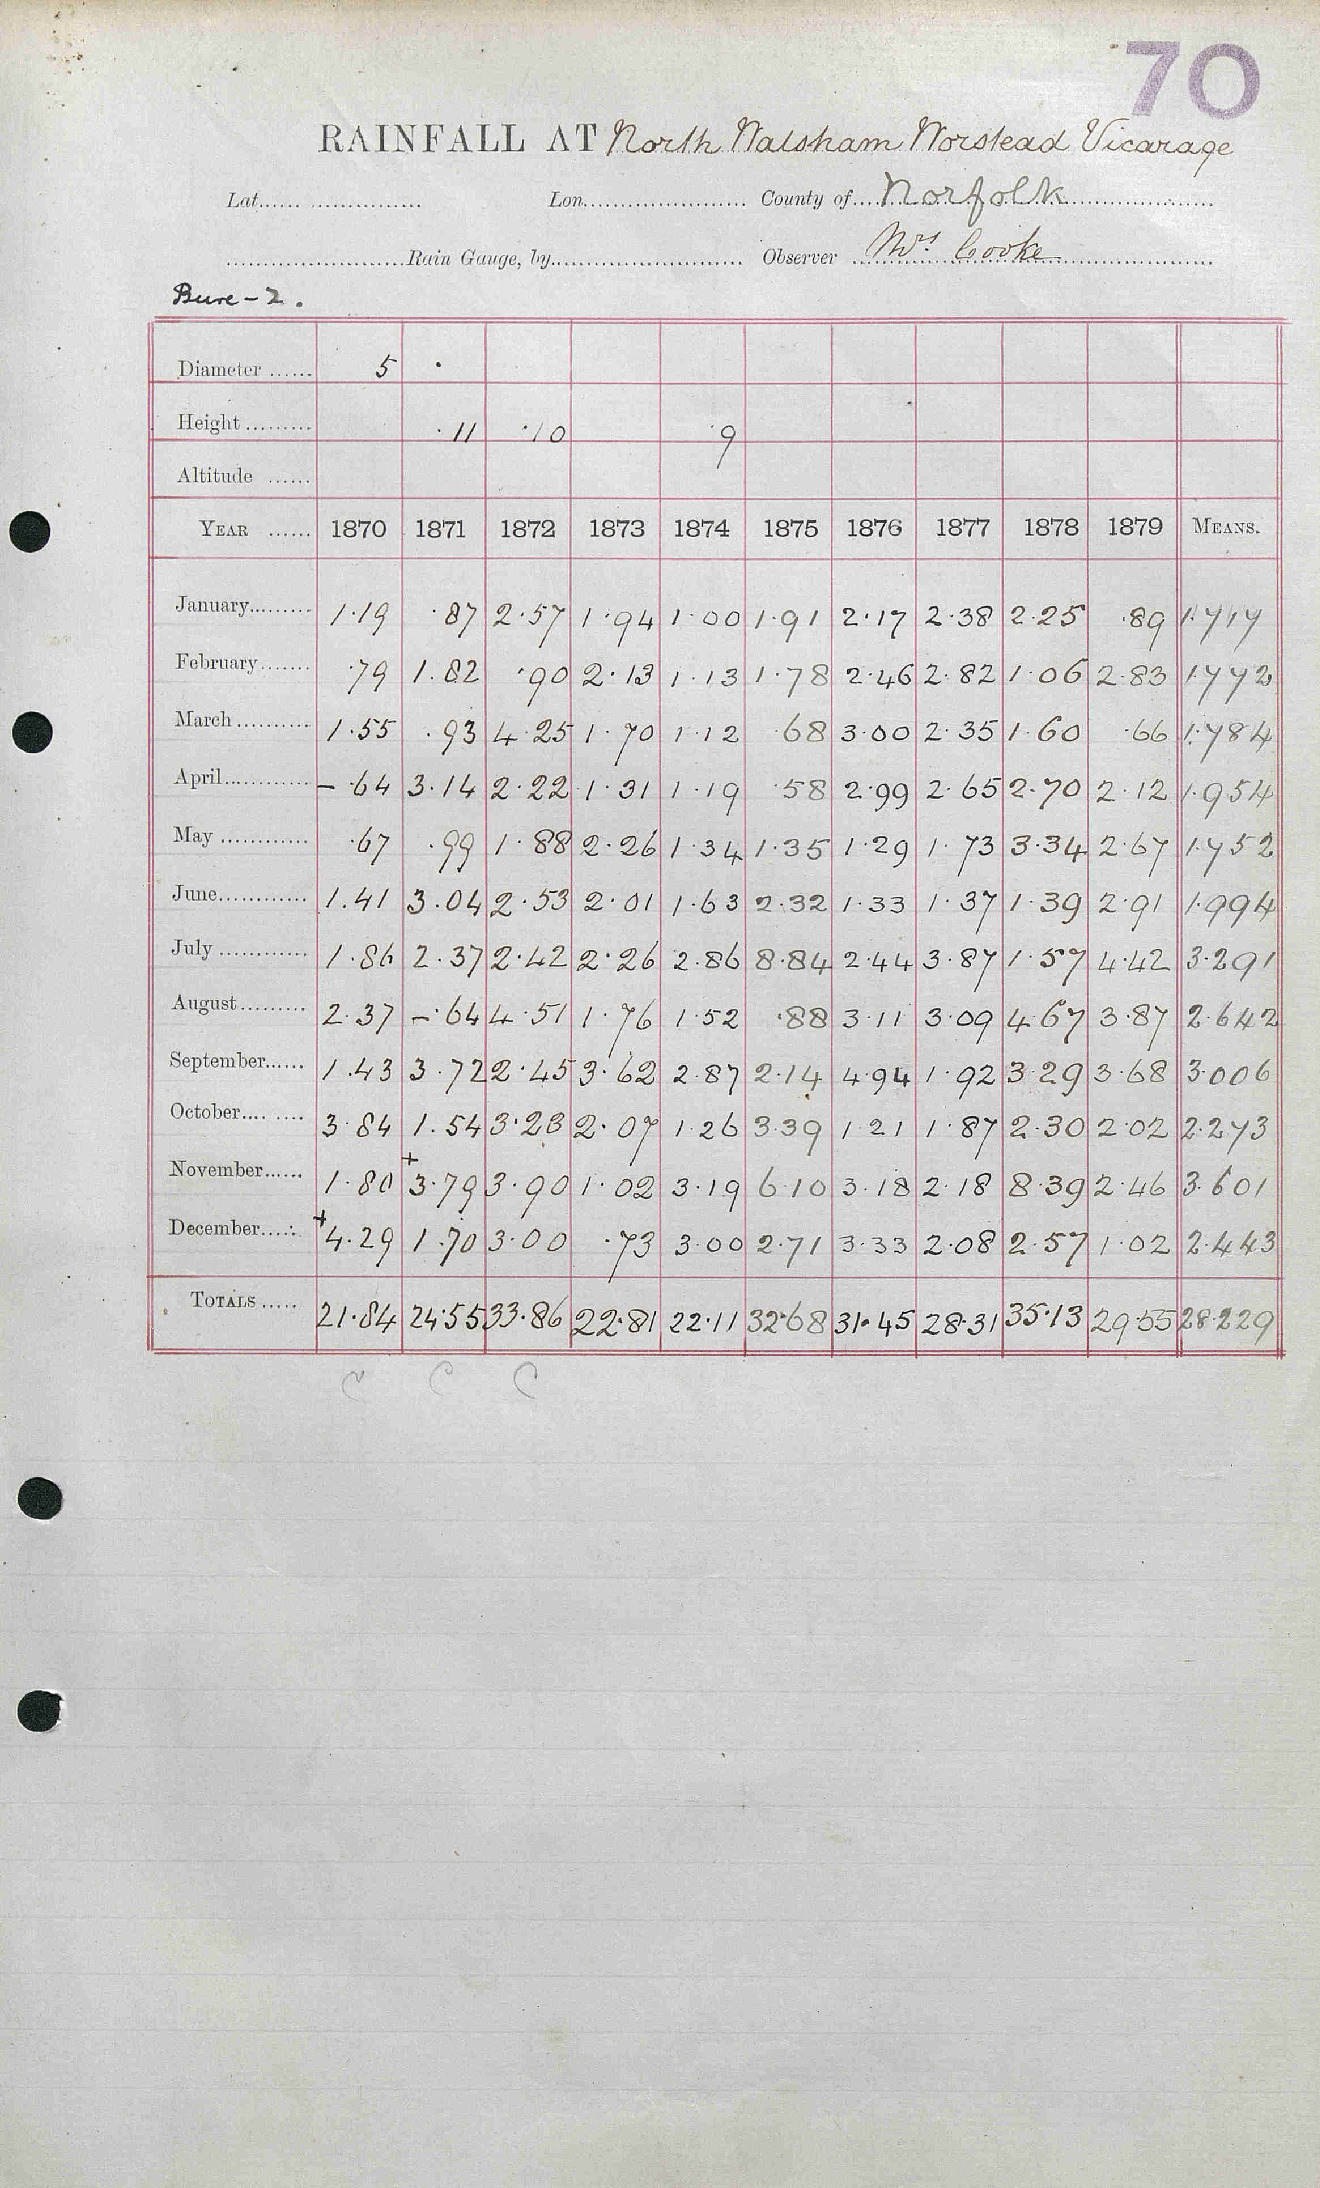 70
RAINFALL AT North Walsham Worstead Vicarage
Lat. Lon. County of Norfolk
Rain Gauge, by Observer Mrs Cooke
Bure - 2.
Diameter 5 ·
Height ·11 ·10 9
Altitude
YEAR 1870 1871 1872 1873 1874 1875 1876 1877 1878 1879 MEANS.
January 1·19 ·87 2·57 1·94 1·00 1·91 2·17 2·38 2·25 ·89 1·717
February ·79 1.82 ·90 2·13 1·13 1·78 2·46 2·82 1·06 2·83 1·772
March 1·55 ·93 4·25 1·70 1·12 ·68 3·00 2·35 1·60 ·66 1·784
April – ·64 3·14 2·22 1·31 1·19 ·58 2·99 2·65 2·70 2·12 1·954
May ·67 ·99 1·88 2·26 1·34 1·35 1·29 1·73 3·34 2·67 1·752
June 1.41 3·04 2·53 2·01 1·63 2·32 1·33 1·37 1·39 2·91 1·994
July 1·86 2·37 2·42 2·26 2·86 8·84 2·44 3·87 1·57 4·42 3·291
August 2·37 – ·64 4·51 1·76 1·52 ·88 3·11 3·09 4·67 3·87 2·642
September 1·43 3·72 2·45 3·62 2·87 2·14 4·94 1·92 3·29 3·68 3·006
October 3·84 1.54 3·23 2·07 1·26 3·39 1·21 1·87 2·30 2·02 2·273
November 1·80 +3·79 3·90 1·02 3·19 6·10 3·18 2·18 8·39 2·46 3·601
December +4·29 1·70 3·00 ·73 3·00 2·71 3·33 2·08 2·57 1·02 2·443
TOTALS 21·84 24·55 33·86 22·81 22·11 32·68 31·45 28·31 35·13 29·55 28·229
C C C